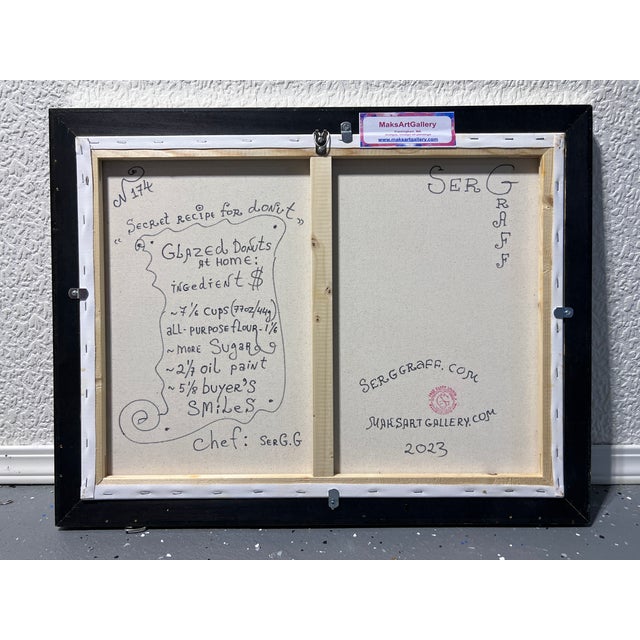 MaksArtGallery
www.maksartgallery.com
N 174
"Secret recipe for donut"
Glazed Donuts
at home:
ingedient $
~ 7 1/6 cups (77oz/44g)
all-purpose flour - 1/6
~ more Sugar
~ 2 1/7 oil paint
~ 5 1/8 buyer's
SMiLeS
chef: SerG.G
Ser Graff
SERGGRAFF.COM
MAKSARTGALLERY.COM
2023